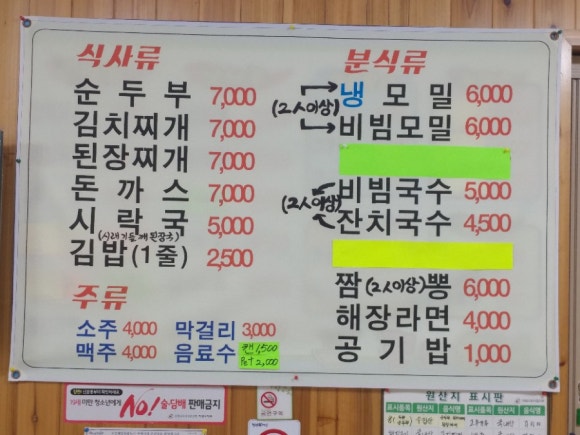 식사류
순두부 7,000
김치찌개 7,000
된장찌개 7,000
돈까스 7,000
시락국 5,000
김밥(1줄) 2,500
주류
소주 4,000 막걸리 3,000
맥주 4,000 음료수 캔 1,500
2,000
분식류
냉모밀 6,000
(2人이상)
비빔모밀 6,000
비빔국수 5,000
(2人이상)
잔치국수 4,500
짬(2人이상)뽕 6,000
해장라면 4,000
공기밥 1,000
19세 미만 청소년에게 NO! 술·담배 판매금지
원산지 표시판
표시품목 원산지 음식명 표시품목 원산지 음식명